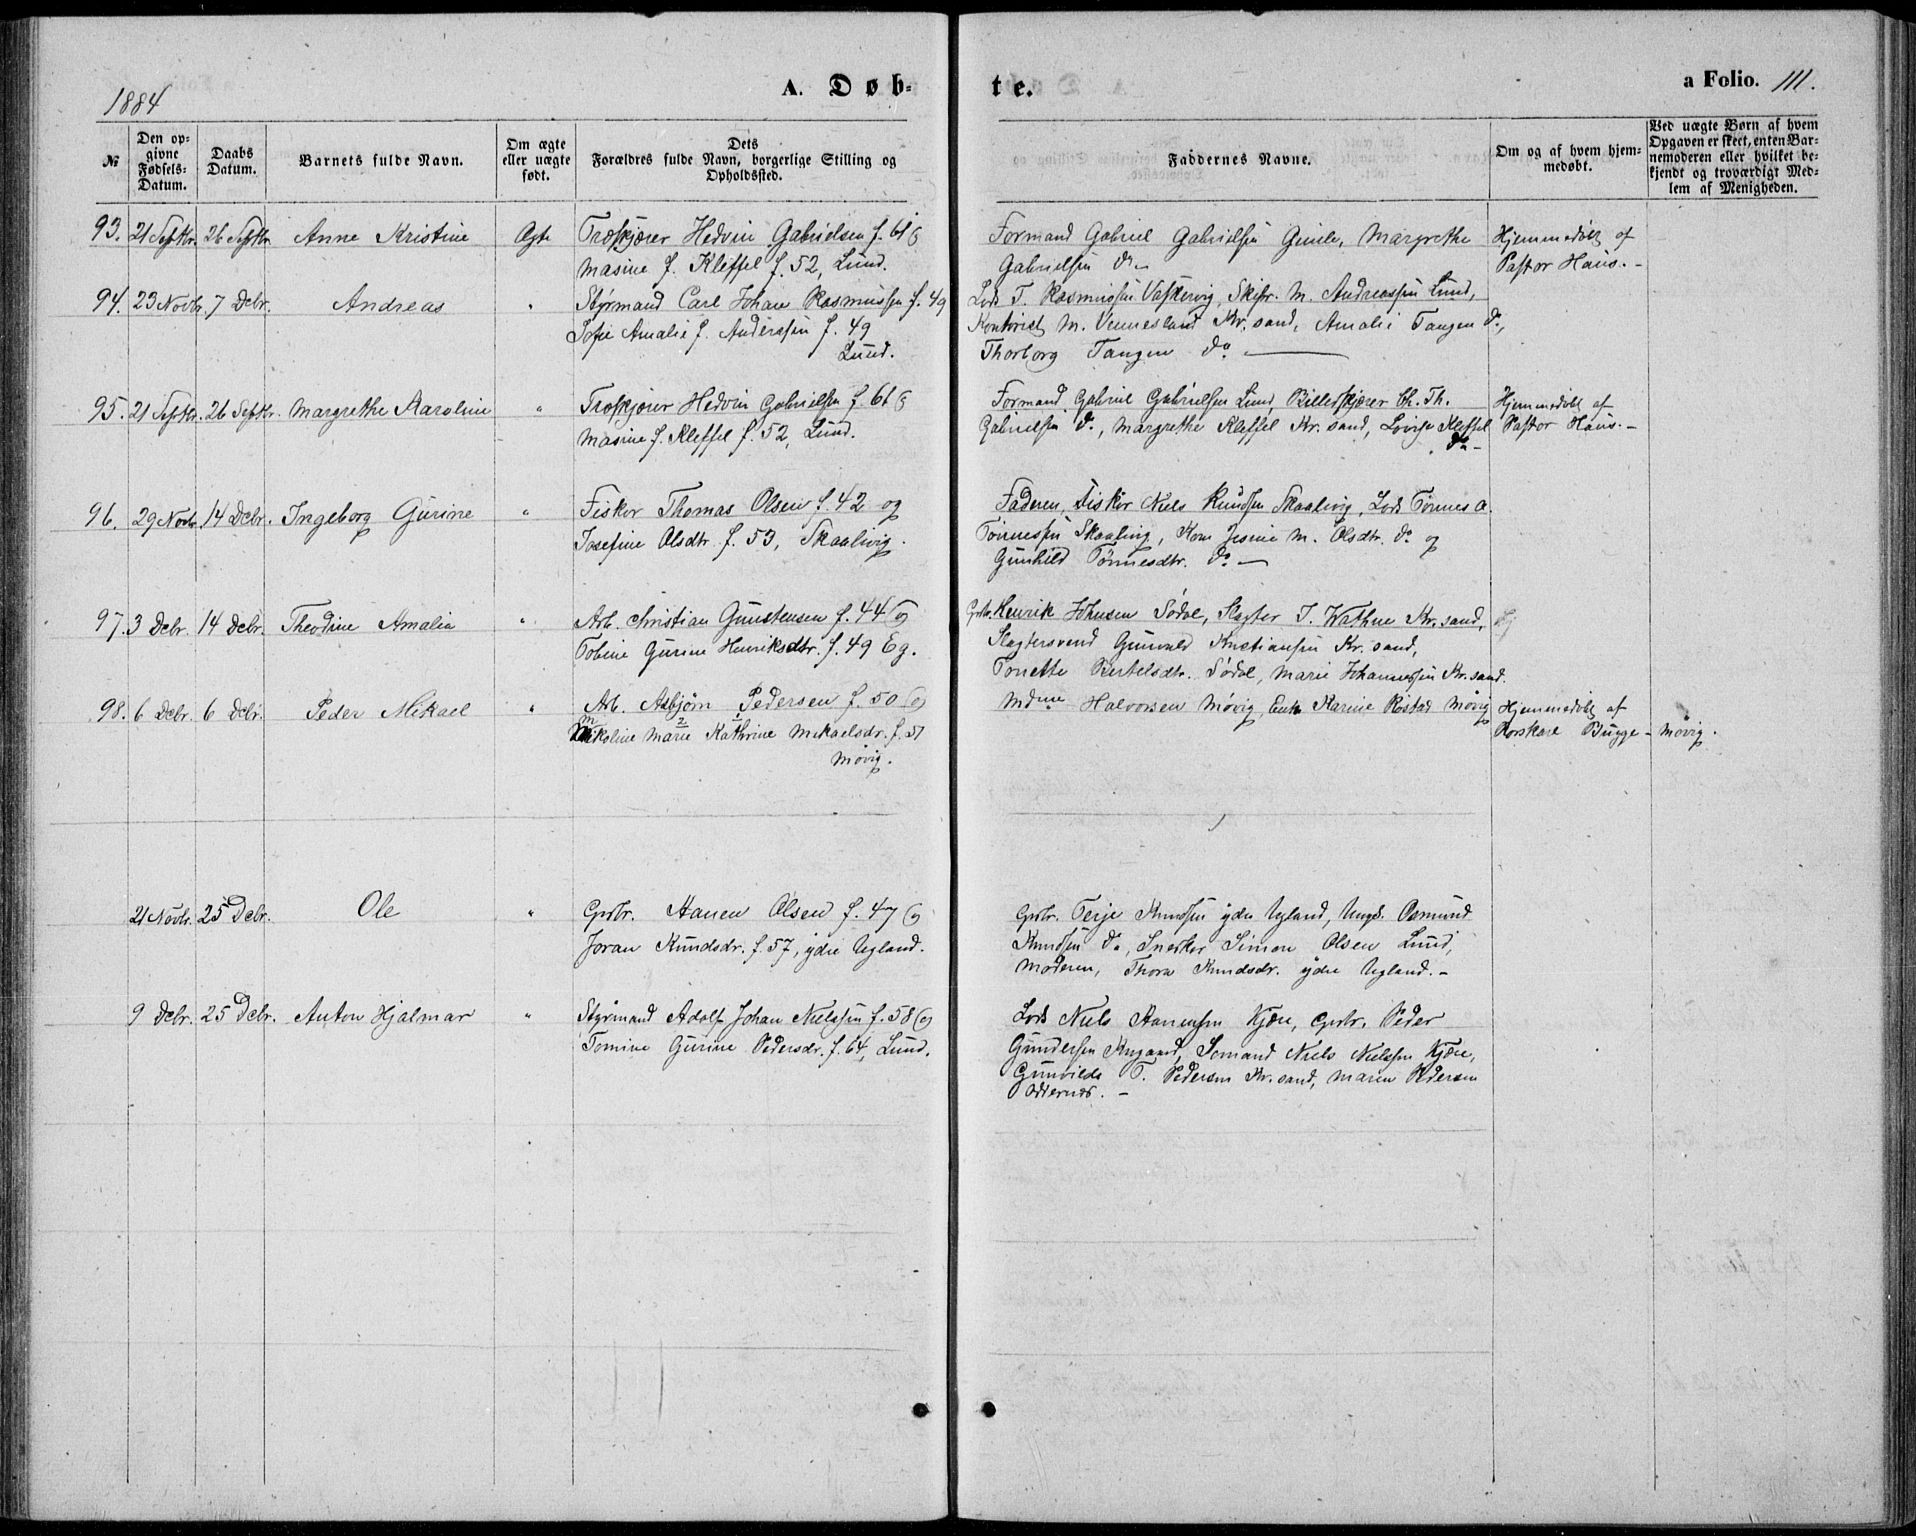 1884
A. Døb-
te.
a Folio. 111.
№
Den op-
givne
Fødsels-
Datum.
Daabs
Datum.
Barnets fulde Navn.
Om ægte
eller uægte
født.
Dets
Forældres fulde Navn, borgerlige Stilling og
Opholdssted.
Faddernes Navne.
Om og af hvem hjem-
medøbt.
Ved uægte Børn af hvem
Opgaven er skeet, enten Bar-
nemoderen eller hvilket be-
kjendt og troværdigt Med-
lem af Menigheden.
93. 21 Septbr. 26 Septbr. Anne Kristine Ægte Træskjærer Hedvin Gabrielsen f. 61 og
Masine f. Kleffel f. 52, Lund.
Formand Gabriel Gabrielsen Gimle, Margrethe
Gabrielsen do
Hjemmedøbt af
Pastor Haus. -
94. 23 Novbr. 7 Decbr. Andreas " Styrmand Carl Johan Rasmussen f. 49
Sofie Amalie f. Anderssen f. 49
Lund.
Lods T. Rasmussen Vaskervig, Skipr. M. Andreassen Lund,
Kontorist M. Vennesland Kr.sand, Amalie Tangen do,
Thorborg Tangen do —
95. 21 Septbr. 26 Septbr. Margrethe Karoline " Træskjærer Hedvin Gabrielsen f. 61 og
Masine f. Kleffel f. 52, Lund.
Formand Gabriel Gabrielsen Lund, Billedskjærer Ch. Th.
Gabrielsen do, Margrethe Kleffel Kr.sand, Lovise Kleffel
do -
Hjemmedøbt af
Pastor Haus. -
96. 29 Novbr. 14 Decbr. Ingeborg Gurine " Fisker Thomas Olsen f. 42 og
Josefine Olsdtr. f. 53, Skaalevig.
Faderen, Fisker Niels Knudsen Skaalevig, Lods Tønnes A.
Tønnessen Skaalevig, Kone Jesine M. Olsdtr. do og
Gunhild Tønnesdtr. do —
97. 3 Decbr. 14 Decbr. Theodine Amalia " Arb. Christian Gunstensen f. 44 og
Tobine Gurine Henriksdtr. f. 49 Eg.
Gbr. Henrik Johnsen Sødal, Slagter J. Wathne Kr.sand,
Slagtersvend Gunvald Kristiansen Kr.sand,
Tonette Bertelsdtr. Sødal, Marie Johannessen Kr.sand.
98. 6 Decbr. 6 Decbr. Peder Mikael " Arb. Asbjørn Pedersen f. 50 og
Mikoline Marie Kathrine Mikaelsdr. f. 57
Møvig.
Mdme Halvorsen Møvig, Enke Karine Røstad Møvig
Hjemmedøbt af
Korskone Bugge - Møvig.
21 Novbr. 25 Decbr. Ole " Gbr. Aanen Olsen f. 47 og
Joran Knudsdr. f. 57, ydre Ugland.
Gbr. Terje Knudsen ydre Ugland, Ungk. Osmund
Knudsen do, Snedker Simon Olsen Lund,
Moderen, Thora Knudsdr. ydre Ugland. -
9 Decbr. 25 Decbr. Anton Hjalmar " Styrmand Adolf Johan Nielssen f. 58 og
Tomine Gurine Pedersdr. f. 64, Lund.
Lods Niels Aanensen Kjære, Gbr. Peder
Gundersen Augland, Sømand Niels Nielsen Kjære,
Gunvilde T. Pedersen Kr.sand, Maren Pedersen
Oddernes. -